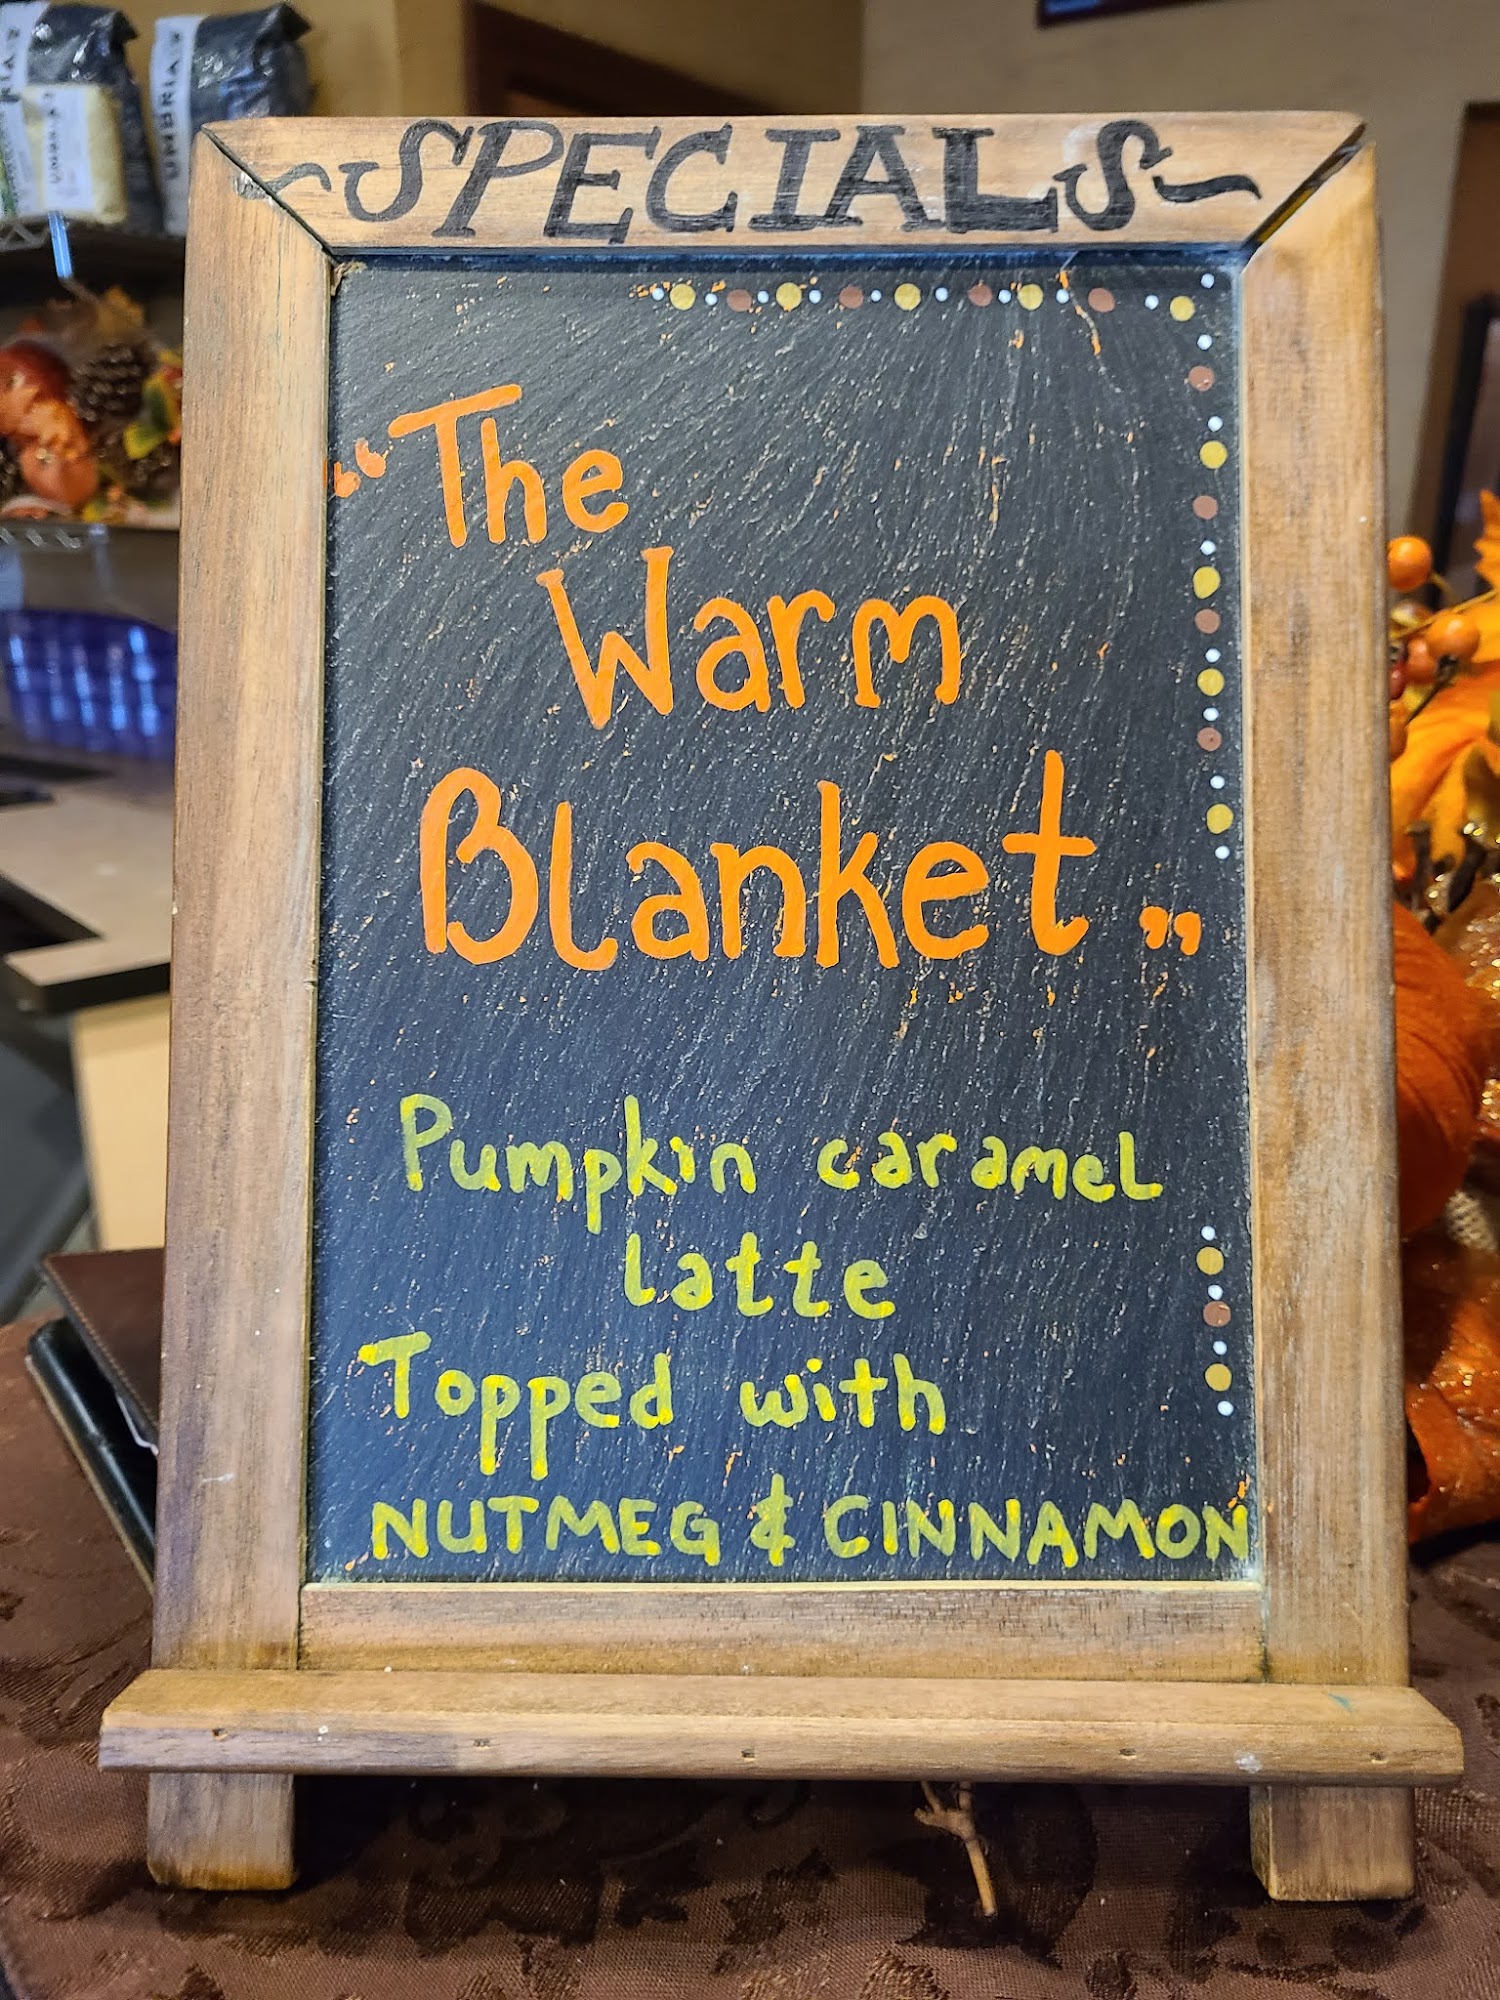 UMBRIA
~SPECIALS~
"The
Warm
Blanket"
Pumpkin caramel
latte
Topped with
NUTMEG & CINNAMON